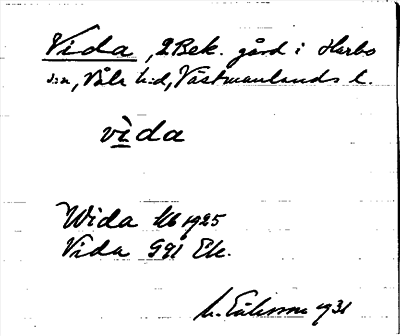 Vida, 2 Bek. gård i Harbo
s:n, Våla h:d, Västmanlands l.
vìda
Wida kb 1925
Vida GGI Ek.
Eriksson 1931